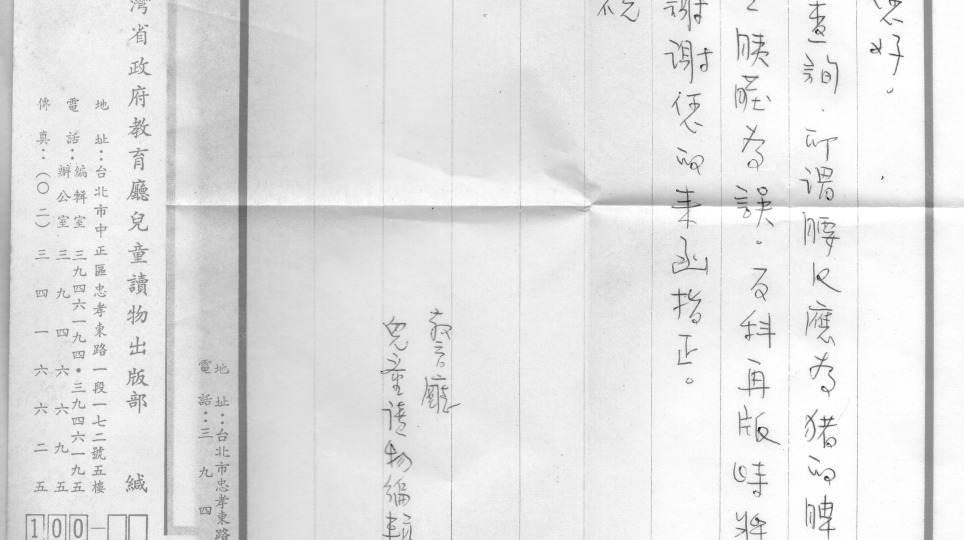 您好。
查詢.所謂腰尺應為豬的脾
胰臟為誤。百科再版時將
謝謝您的來函指正。
祝
教育廳
兒童讀物編輯
地址：台北市忠孝東路
電話：三九四
灣省政府教育廳兒童讀物出版部 緘
地址：台北市中正區忠孝東路一段一七二號五樓
電話：編輯室 三九四六一九四•三九四六一九五
辦公室 三九四六六九五
傳真：（○二）三四一六六二五
100-